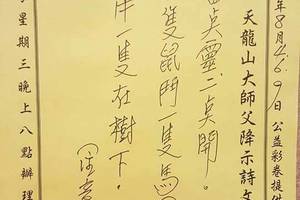 年8月4.6.9日公益彩卷提供
天龍山大師父降示詩文
奌靈二奌開。
隻鼠鬥一隻馬
一隻在樹下。
星期三晚上八點辦理